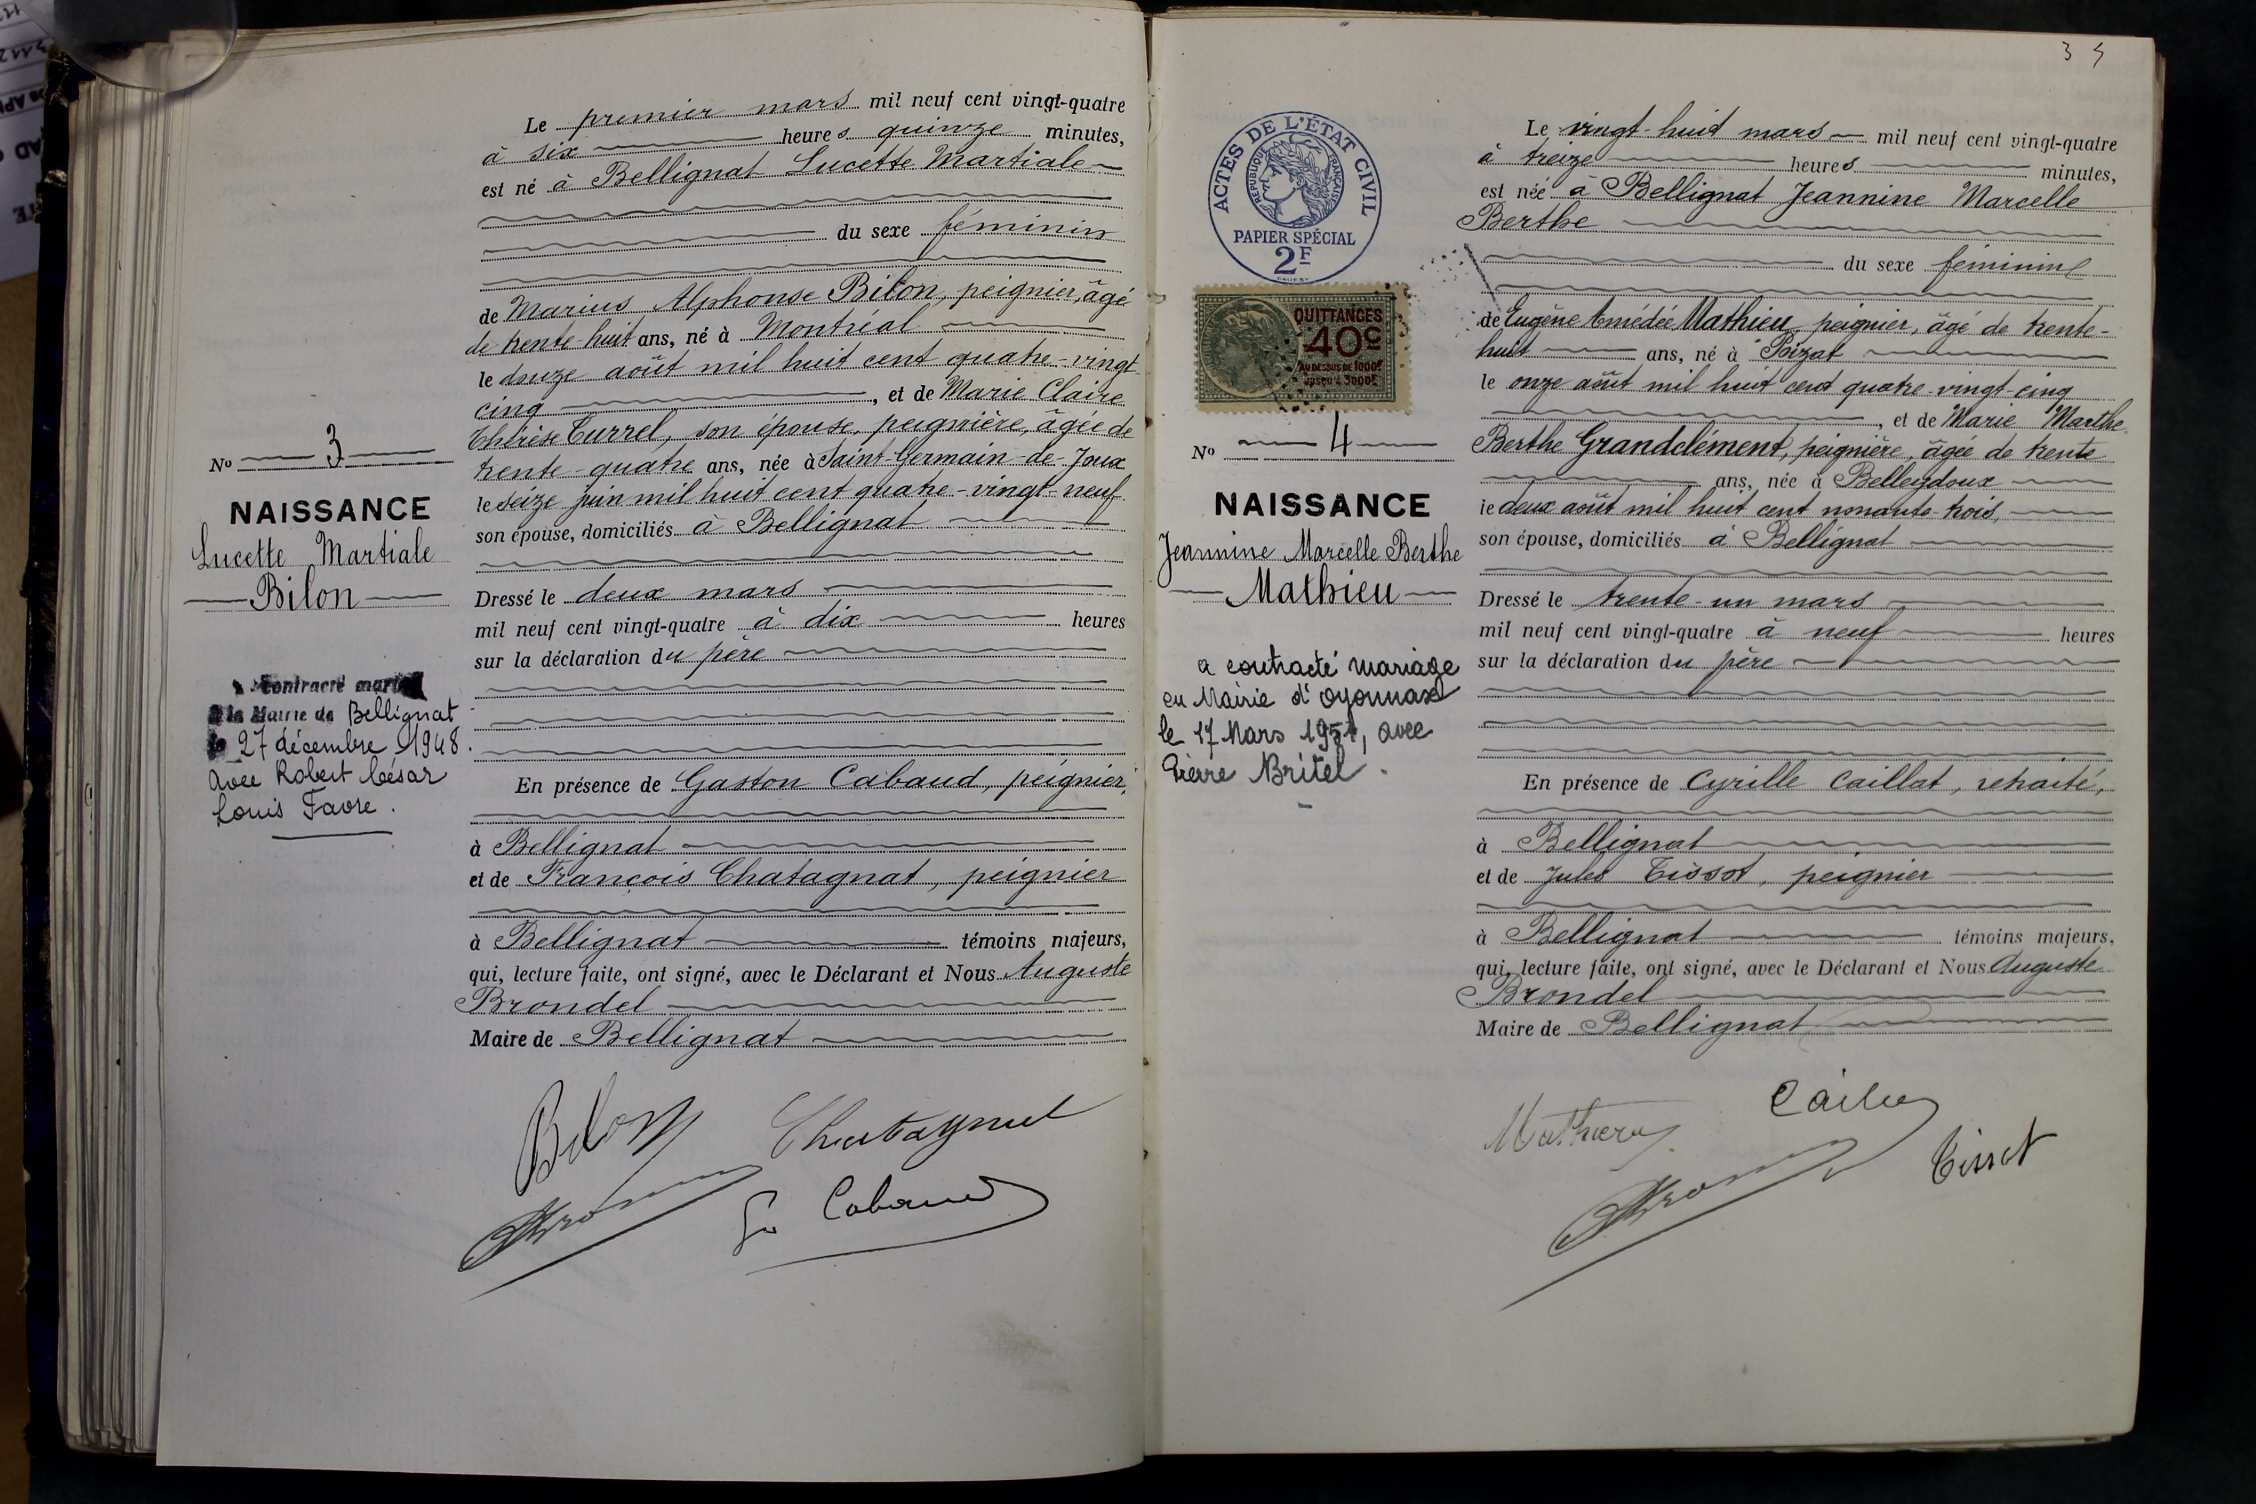 Le premier mars mil neuf cent vingt-quatre
à six heures quinze minutes,
est né à Bellignat Lucette Martiale
du sexe féminin
de Marius Alphonse Bilon, peignier, âgé
de trente-huit ans, né à Montréal
le douze août mil huit cent quatre-vingt
cinq, et de Marie Claire
Thérèse Turrel, son épouse, peignière, âgée de
trente-quatre ans, née à Saint-Germain-de-Joux
le seize juin mil huit cent quatre-vingt-neuf
son épouse, domiciliés à Bellignat
Dressé le deux mars
mil neuf cent vingt-quatre à dix heures
sur la déclaration du père
En présence de Gaston Cabaud, peignier,
à Bellignat
et de François Chatagnat, peignier
à Bellignat témoins majeurs,
qui, lecture faite, ont signé, avec le Déclarant et Nous Auguste
Brondel
Maire de Bellignat
Bilon Chatagnat
G. Cabaud
No 3
NAISSANCE
Lucette Martiale
Bilon
contracté
à la Mairie de Bellignat
le 27 décembre 1948.
avec Robert César
Louis Favre.
ACTES DE L'ÉTAT CIVIL
RÉPUBLIQUE FRANÇAISE
PAPIER SPÉCIAL
2F
QUITTANCES
40c
AU DESSUS DE 1000F
JUSQU'À 3000F
No 4
NAISSANCE
Jeannine Marcelle Berthe
Mathieu
a contracté mariage
en Mairie d'Oyonnax
le 17 Mars 1951, avec
Pierre Britel.
3
Le vingt-huit mars mil neuf cent vingt-quatre
à treize heures minutes,
est née à Bellignat Jeannine Marcelle
Berthe
du sexe féminin
de Eugène Amédée Mathieu, peignier, âgé de trente-
huit ans, né à Poizat
le onze août mil huit cent quatre-vingt-cinq
, et de Marie Marthe
Berthe Grandclément, peignière, âgée de trente
ans, née à Belleydoux
le deux août mil huit cent nonante-trois,
son épouse, domiciliés à Bellignat
Dressé le trente-un mars
mil neuf cent vingt-quatre à neuf heures
sur la déclaration du père
En présence de Cyrille Caillat, retraité,
à Bellignat
et de Jules Tissot, peignier
à Bellignat témoins majeurs,
qui, lecture faite, ont signé, avec le Déclarant et Nous Auguste
Brondel
Maire de Bellignat
Mathieu
Tissot